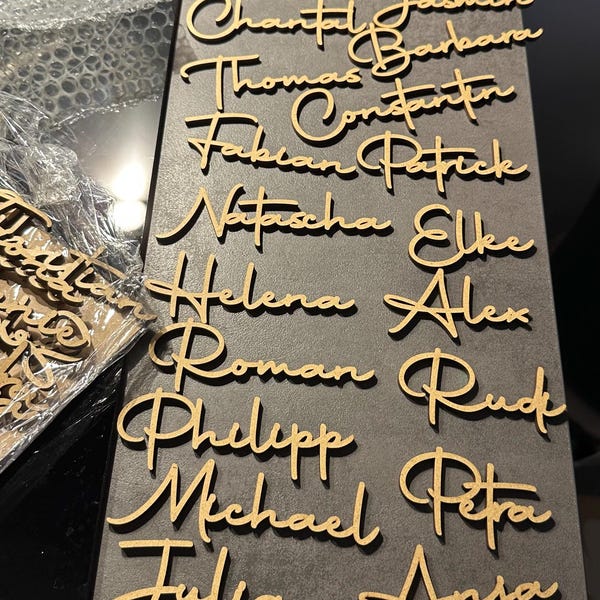 Chantal Jasmin
Barbara
Thomas
Constantin
Fabian Patrick
Natascha
Elke
Helena Alex
Roman
Rudi
Philipp
Petra
Michael
Julia Anja